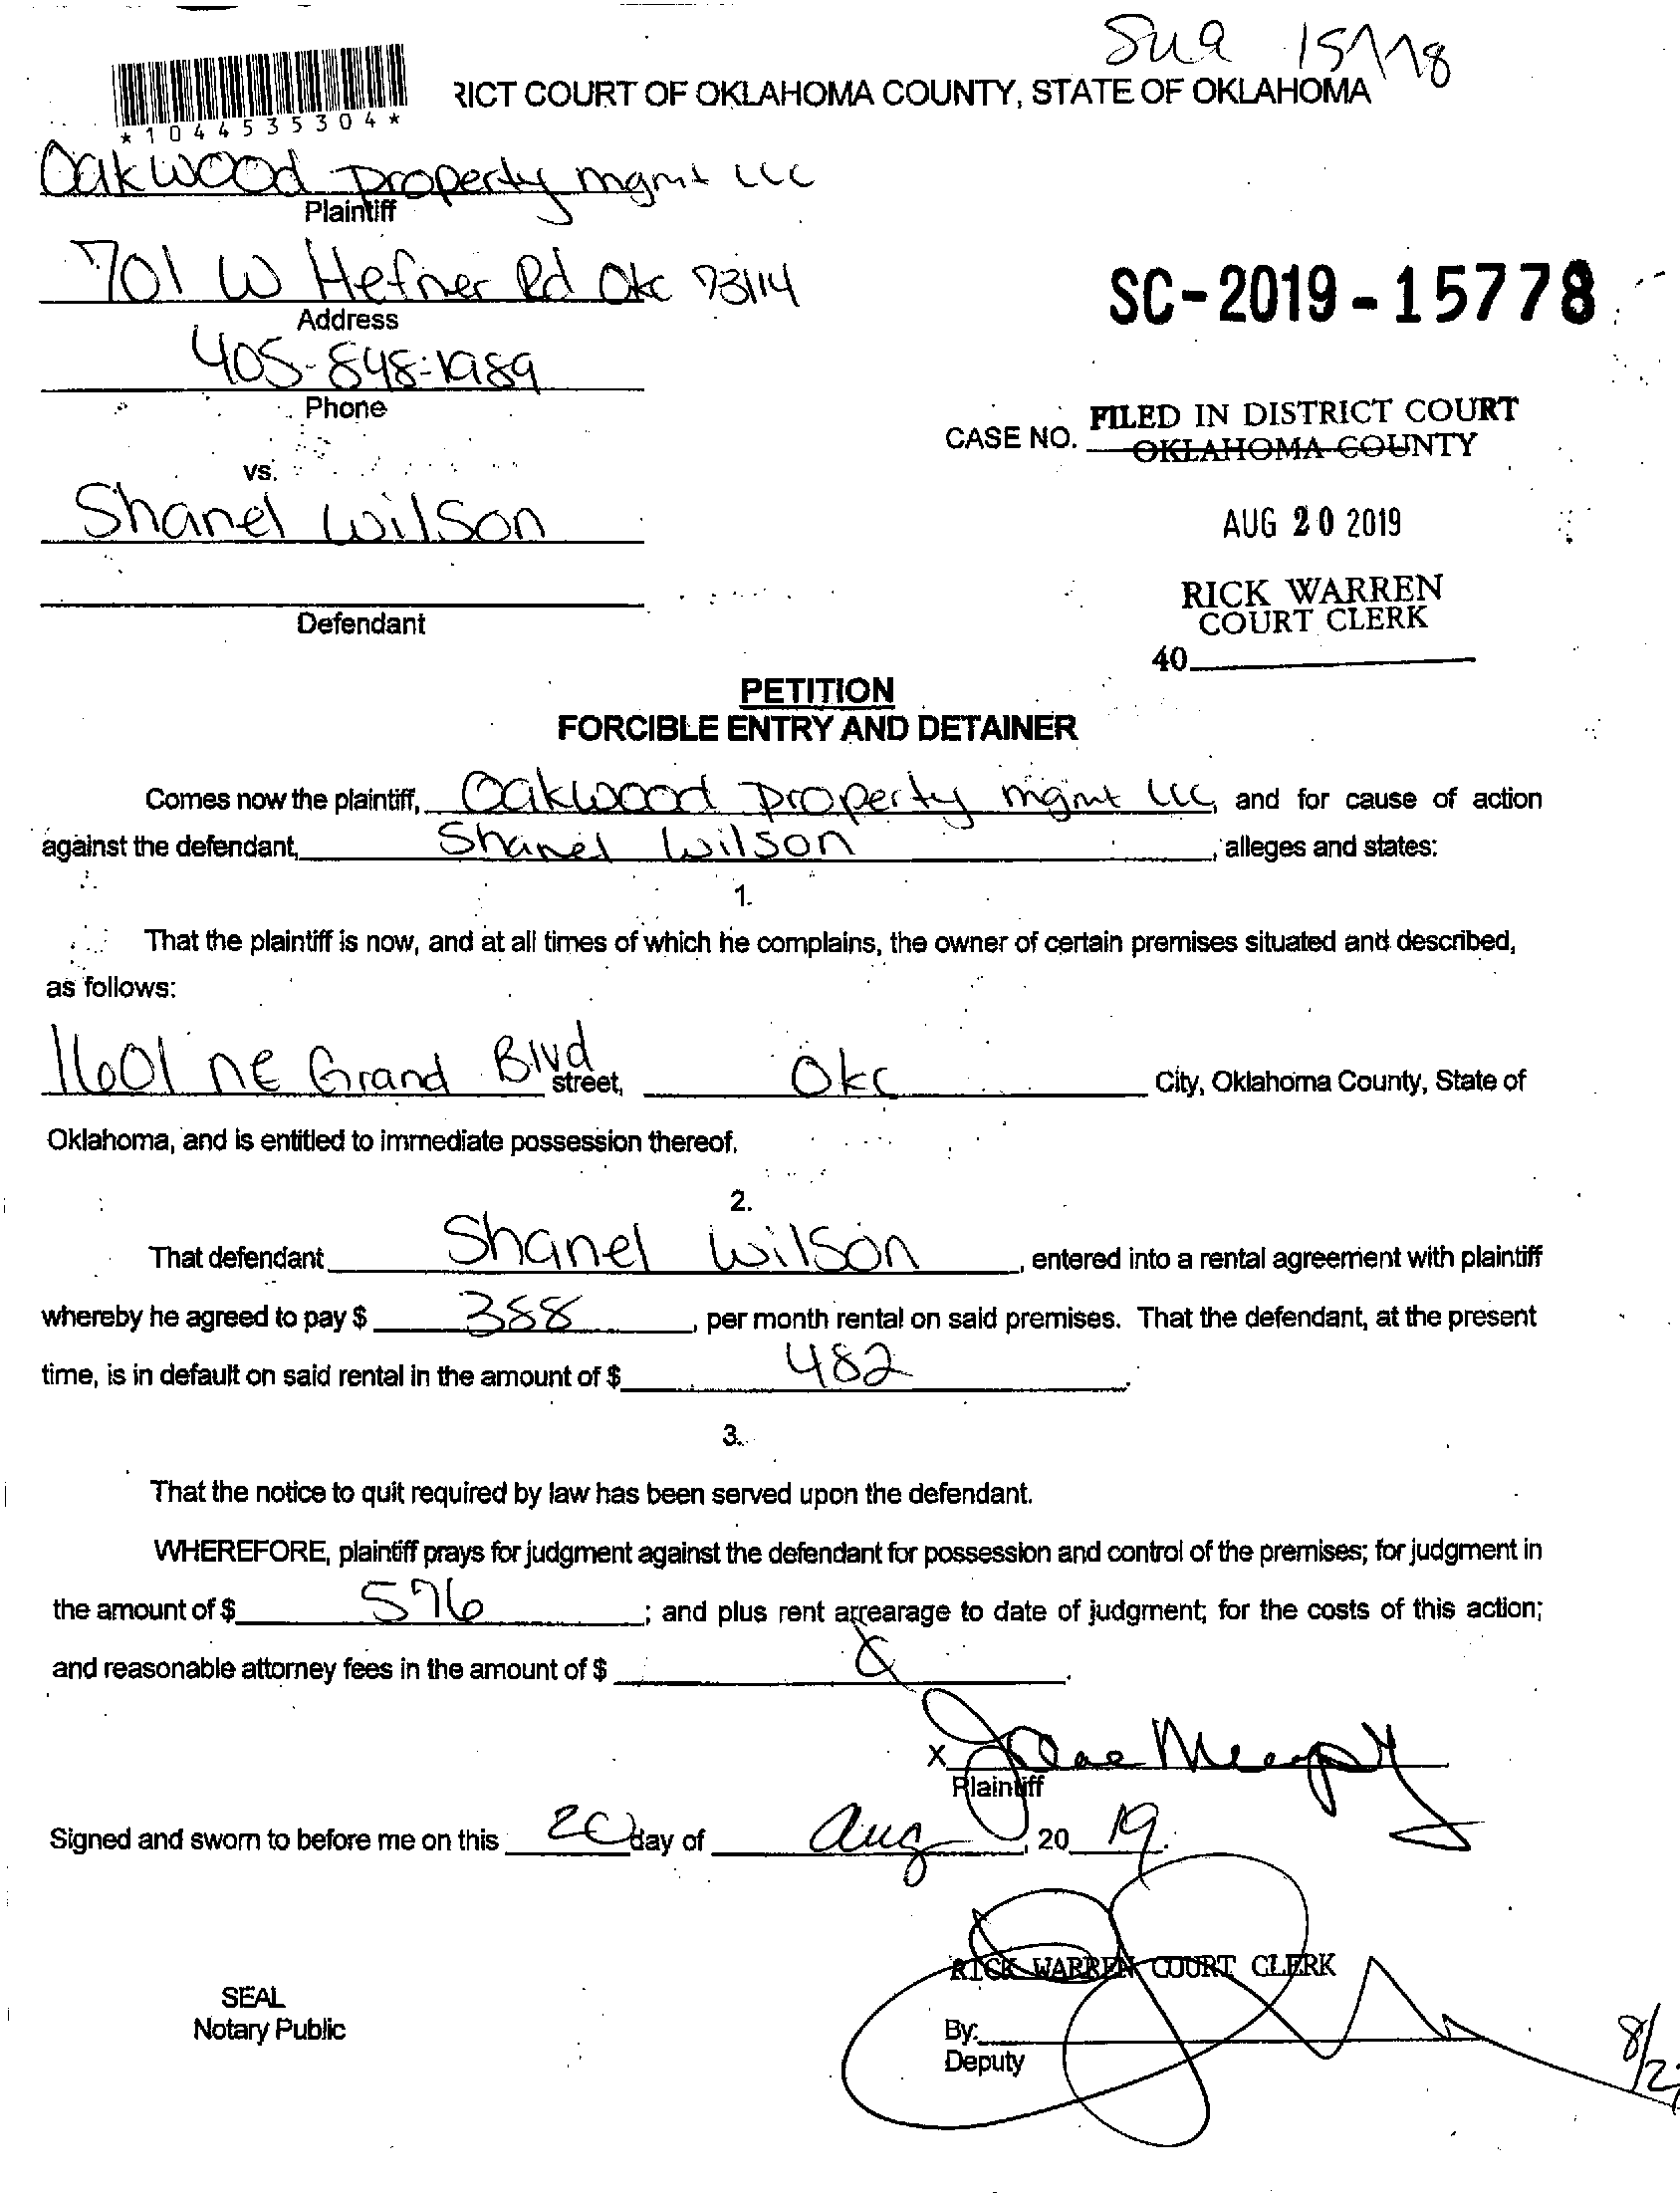 Sua
RICT COURT OF OKLAHOMA COUNTY, STATE OF OKLAHOMA
*1044535304*
Oakwood property mgmt LLC
Plaintiff
701 W Hefner Rd Okc 73114
Address
SC-2019-15778
405-848-1989
Phone
FILED IN DISTRICT COURT
CASE NO. OKLAHOMA COUNTY
vs.
Shanel Wilson
AUG 20 2019
RICK WARREN
COURT CLERK
Defendant
40
PETITION
FORCIBLE ENTRY AND DETAINER
Comes now the plaintiff, Oakwood property mgmt LLC, and for cause of action
against the defendant, Shanel Wilson, alleges and states:
1.
That the plaintiff is now, and at all times of which he complains, the owner of certain premises situated and described,
as follows:
1601 NE Grand Blvd street, Okc City, Oklahoma County, State of
Oklahoma, and is entitled to immediate possession thereof.
2.
That defendant Shanel Wilson, entered into a rental agreement with plaintiff
whereby he agreed to pay $ 388, per month rental on said premises. That the defendant, at the present
time, is in default on said rental in the amount of $ 482.
3.
That the notice to quit required by law has been served upon the defendant.
WHEREFORE, plaintiff prays for judgment against the defendant for possession and control of the premises; for judgment in
the amount of $ 576; and plus rent arrearage to date of judgment; for the costs of this action;
and reasonable attorney fees in the amount of $
X
Plaintiff
Signed and sworn to before me on this 20 day of Aug, 20 19.
RICK WARREN COURT CLERK
SEAL
Notary Public
By:
Deputy